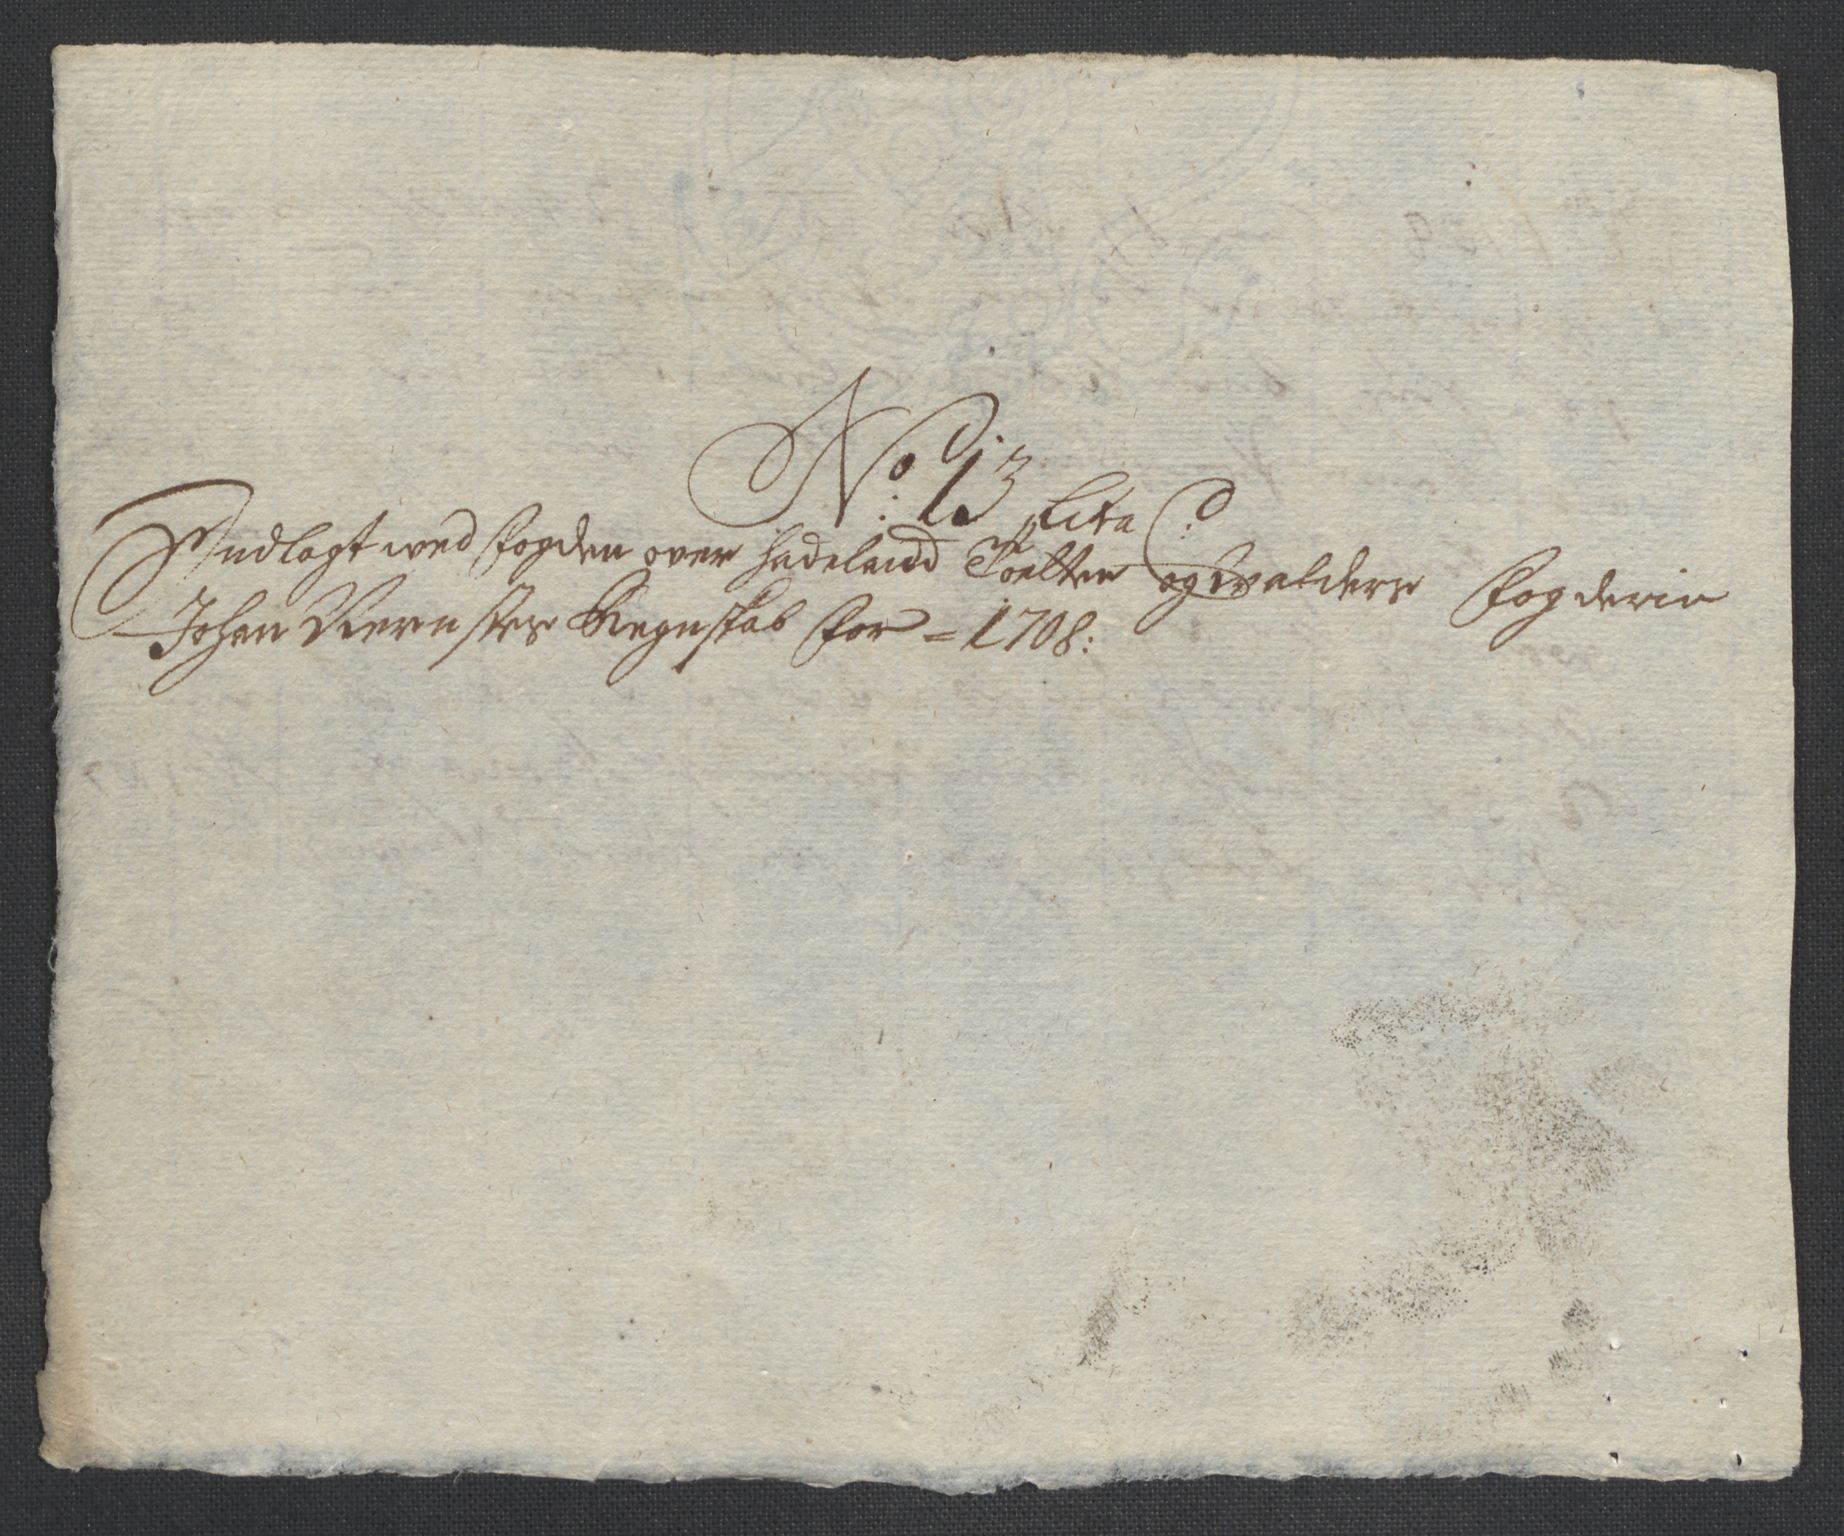 No: 13 Lita C:
Indlagt wed fogden over Hadeland Toelten og Walders fogderie
Johan Rernstes Regnskab for = 1708: